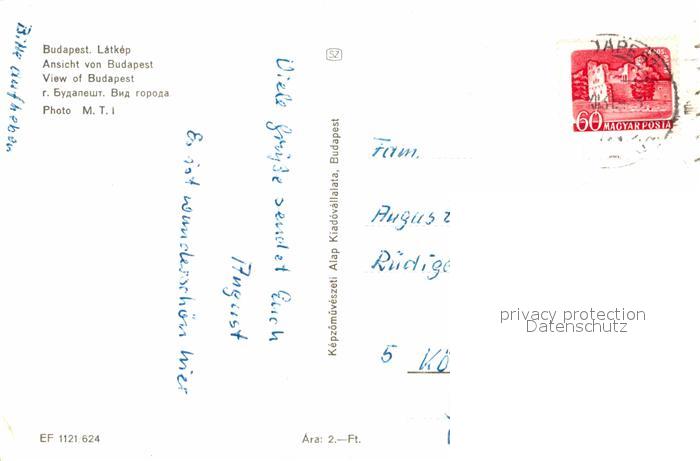 Bitte aufheben
Budapest. Látkép
Ansicht von Budapest
View of Budapest
г. Будапешт. Вид города
Photo M. T. I
Viele Grüße sendet Euch
August
Es ist wunderschön hier
Képzőművészeti Alap Kiadóvállalata, Budapest
SZ
60
MAGYAR POSTA
Fam.
August
Rüdige
5 Kö
privacy protection
Datenschutz
EF 1121/624
Ára: 2.—Ft.